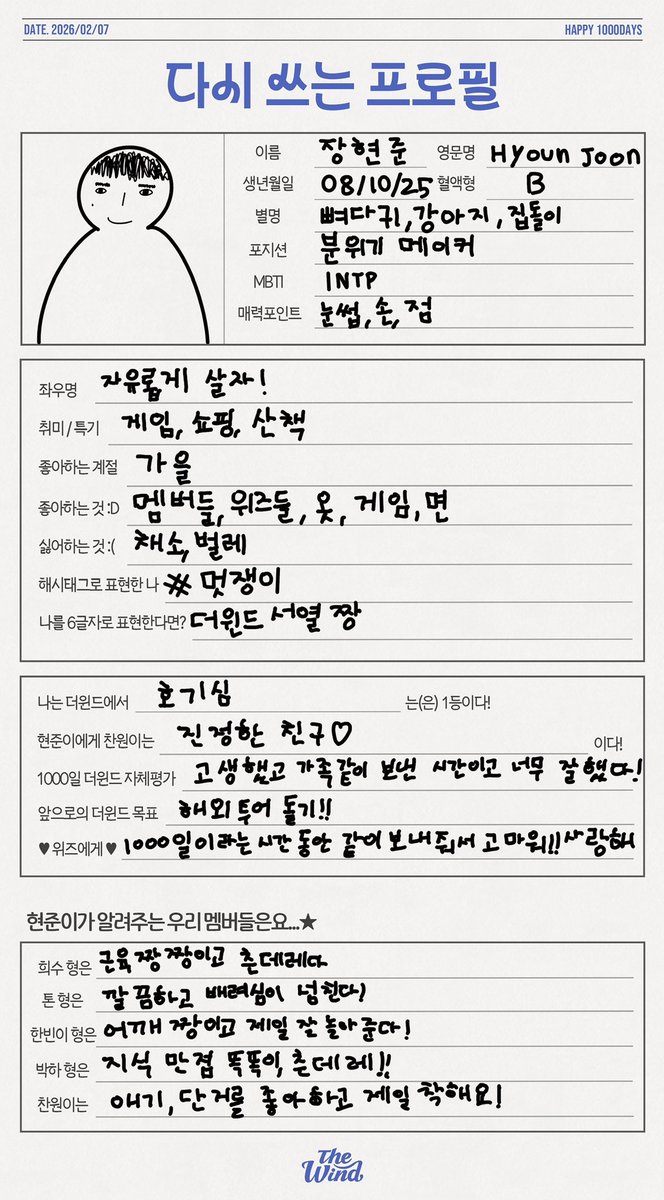 DATE. 2026/02/07 HAPPY 1000DAYS
다시 쓰는 프로필
이름 장현준 영문명 HYoun Joon
생년월일 08/10/25 혈액형 B
별명 뼈다귀, 강아지, 집돌이
포지션 분위기 메이커
MBTI INTP
매력포인트 눈썹, 손, 점
좌우명 자유롭게 살자!
취미 / 특기 게임, 쇼핑, 산책
좋아하는 계절 가을
좋아하는 것 :D 멤버들, 위즈들, 옷, 게임, 면
싫어하는 것 :( 채소, 벌레
해시태그로 표현한 나 # 멋쟁이
나를 6글자로 표현한다면? 더윈드 서열 짱
나는 더윈드에서 호기심 는(은) 1등이다!
현준이에게 찬원이는 진정한 친구♡ 이다!
1000일 더윈드 자체평가 고생했고 가족같이 보낸 시간이고 너무 잘했다!
앞으로의 더윈드 목표 해외 투어 돌기!!
♥위즈에게♥ 1000일이라는 시간 동안 같이 보내줘서 고마워!! 사랑해
현준이가 알려주는 우리 멤버들은요...★
희수 형은 근육 짱짱이고 츤데레다
톤 형은 깔끔하고 배려심이 넘친다!
한빈이 형은 어깨 짱이고 제일 잘 놀아준다!
박하 형은 지식 만점 똑똑이, 츤데레!!
찬원이는 애기, 단거를 좋아하고 제일 착해요!
The Wind